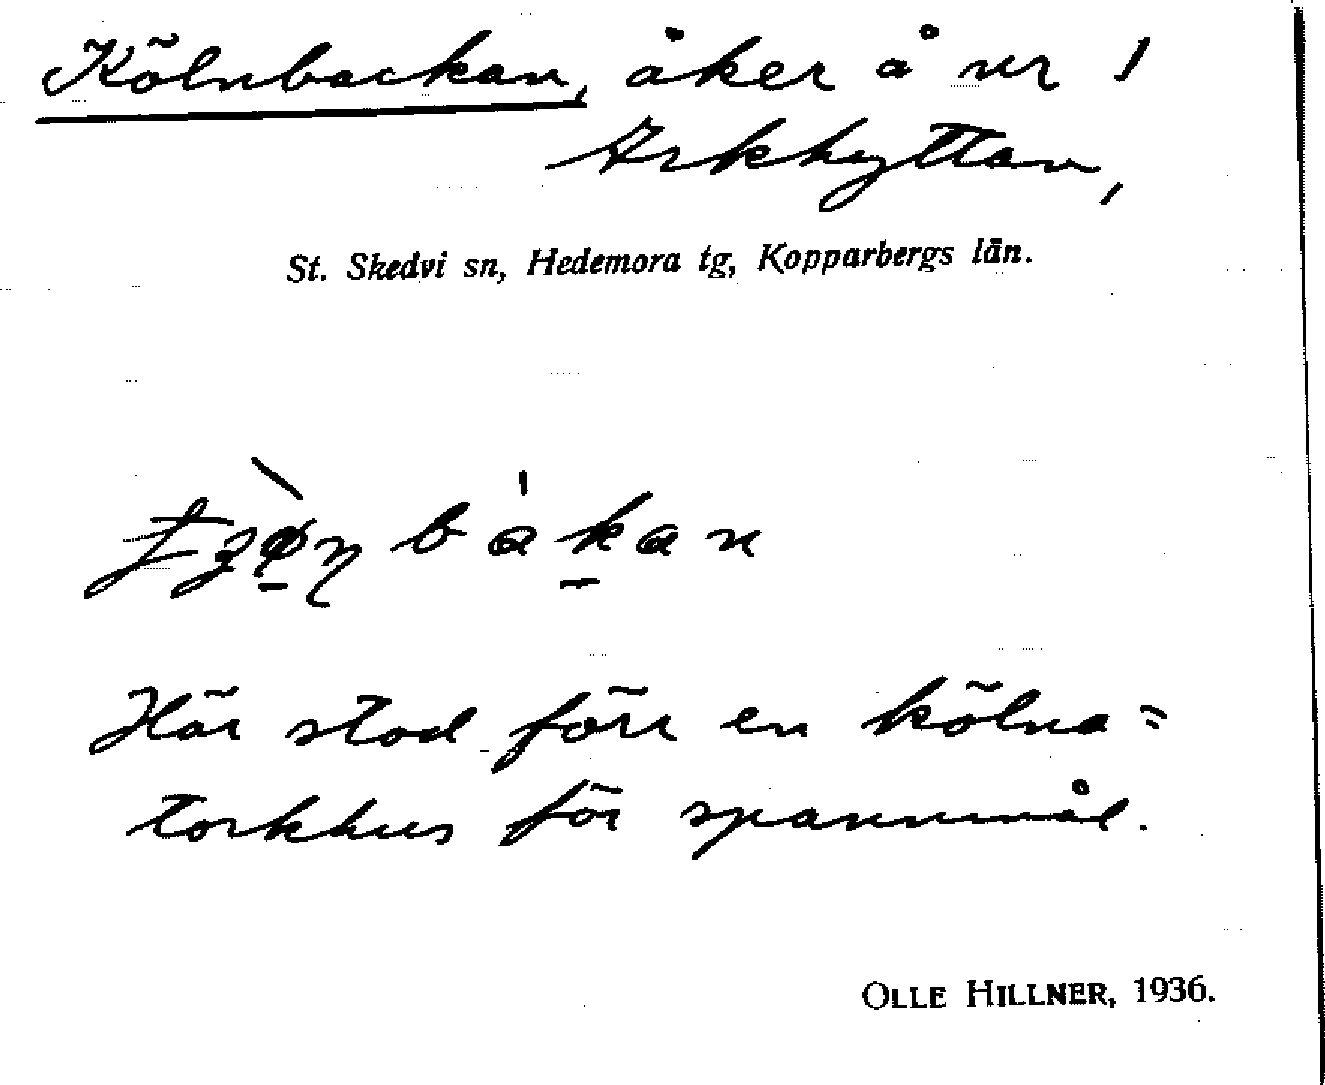 Kölnbackan, åker å nr 1
Arkhyttan,
St. Skedvi sn, Hedemora tg, Kopparbergs län.
Här stod förr en kölna=
torkhus för spannmål.
OLLE HILLNER, 1936.